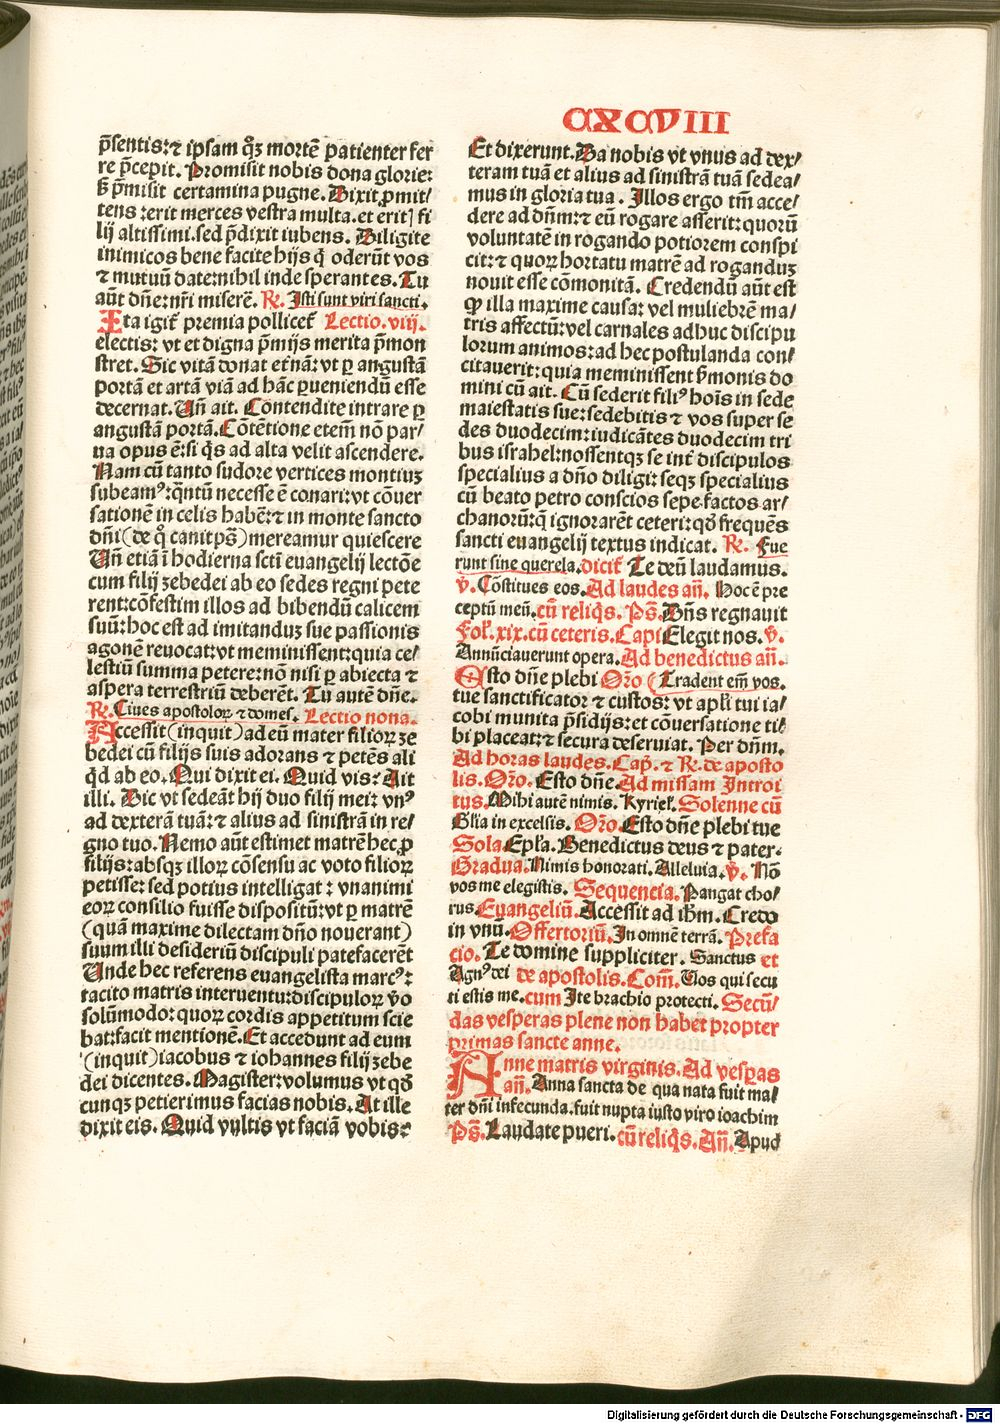 CXCVIII
p̄sentis: ⁊ ipsam qꝫ mortē patienter fer
re p̄cepit. Promisit nobis dona glorie:
ß p̄misit certamina pugne. Dixit ꝓmit/
tens: erit merces vestra multa. et erit⁊ fi
lij altissimi. sed p̄dixit iubens. Diligite
inimicos bene facite hijs q̄ oderūt vos
⁊ mutuū date: nihil inde sperantes. Tu
aūt dn̄e: nr̄i miserē. R̷. Isti sunt viri sancti.
Ita igit̄ premia pollicet̄ Lectio. viij.
electis: vt et digna p̄mijs merita p̄mon
stret. Sic vitā donat et̄nā: vt ꝑ angustā
portā et artā viā ad hāc ꝑueniendū esse
decernat. Un̄ ait. Contendite intrare ꝑ
angustā portā. Cōtētione etem̄ nō par/
ua opus ē: si q̄s ad alta velit ascendere.
Nam cū tanto sudore vertices montiuꝫ
subeamꝰ: q̄ntū necesse ē conari: vt cōuer
sationē in celis habē: ⁊ in monte sancto
dn̄i (de q̊ canit ps̄) mereamur quiescere
Un̄ etiā ī hodierna sct̄i euangelij lectōe
cum filij zebedei ab eo sedes regni pete
rent: cōfestim illos ad bibendū calicem
suū: hoc est ad imitanduꝫ sue passionis
agonē reuocat: vt meminissent: quia ce/
lestiū summa petere: nō nisi ꝑ abiecta ⁊
aspera terrestriū deberēt. Tu autē dn̄e.
R̷. Ciues apostoloꝝ ⁊ domes. Lectio nona.
Accessit (inquit) ad eū mater filioꝝ ze
bedei cū filijs suis adorans ⁊ petēs ali
q̄d ab eo. Qui dixit ei. Quid vis? Ait
illi. Dic vt sedeāt hij duo filij mei: vnꝰ
ad dexterā tuā: ⁊ alius ad sinistrā in re/
gno tuo. Nemo aūt estimet matrē hec ꝓ
filijs: absqꝫ illoꝝ cōsensu ac voto filioꝝ
petisse: sed potius intelligat: vnanimi
eoꝝ consilio fuisse dispositū: vt ꝑ matrē
(quā maxime dilectam dn̄o nouerant)
suum illi desideriū discipuli patefacerēt
Unde hec referens euangelista marcꝰ:
tacito matris interuentu: discipuloꝝ v̊o
solūmodo: quoꝝ cordis appetitum scie
bat: facit mentionē. Et accedunt ad eum
(inquit) iacobus ⁊ iohannes filij zebe
dei dicentes. Magister: volumus vt qd̄
cunqꝫ petierimus facias nobis. At ille
dixit eis. Quid vultis vt faciā vobis?
Et dixerunt. Da nobis vt vnus ad dex/
teram tuā et alius ad sinistrā tuā sedea/
mus in gloria tua. Illos ergo tm̄ acce/
dere ad dn̄m: ⁊ eū rogare asserit: quorū
voluntatē in rogando potiorem conspi
cit: ⁊ quoꝝ hortatu matrē ad roganduꝫ
nouit esse cōmonitā. Credendū aūt est
ꝙ illa maxime causa: vel muliebrē ma/
tris affectū: vel carnales adhuc discipu
lorum animos: ad hec postulanda con/
citauerit: quia meminissent ẜmonis do
mini cū ait. Cū sederit filiꝰ hoīs in sede
maiestatis sue: sedebitis ⁊ vos super se
des duodecim: iudicātes duodecim tri
bus israhel: nossentqꝫ se int̄ discipulos
specialius a dn̄o diligi: seqꝫ specialius
cū beato petro conscios sepe factos ar/
chanorū: q̄ ignorarēt ceteri: qd̄ frequēs
sancti euangelij textus indicat. R̷. Fue
runt sine querela. dicit̄ Te deū laudamus.
v̊. Cōstitues eos. Ad laudes an̄. Hoc ē pre
ceptū meū. cū reliq̄s. Ps̄. Dn̄s regnauit
Fol̄. xix. cū ceteris. Capi Elegit nos. v̊.
Annūciauerunt opera. Ad benedictus an̄.
Esto dn̄e plebi Or̄o (Tradent em̄ vos.
tue sanctificator ⁊ custos: vt apl̄i tui ia/
cobi munita p̄sidijs: et cōuersatione ti/
bi placeat: ⁊ secura deseruiat. Per dn̄m.
Ad horas laudes. Cap̄. ⁊ R̷. de aposto
lis. Or̄o. Esto dn̄e. Ad missam Introi
tus. Mihi autē nimis. Kyriel̄. Solenne cū
Gl̄ia in excelsis. Or̄o. Esto dn̄e plebi tue
Sola. Epl̄a. Benedictus deus ⁊ pater.
Gradua. Nimis honorati. Alleluia. v̊. Nō
vos me elegistis. Sequencia. Pangat cho/
rus. Euangeliū. Accessit ad ih̄m. Credo
in vnū. Offertoriū. In omnē terrā. Prefa
cio. Te domine suppliciter. Sanctus et
Agnꝰ dei de apostolis. Com̄. Vos qui secu
ti estis me. cum Ite brachio protecti. Secū/
das vesperas plene non habet propter
primas sancte anne.
Anne matris virginis. Ad vesꝑas
an̄. Anna sancta de qua nata fuit ma/
ter dn̄i infecunda. fuit nupta iusto viro ioachim
Ps̄. Laudate pueri. cū reliq̄s. An̄. Apud
Digitalisierung gefördert durch die Deutsche Forschungsgemeinschaft - DFG